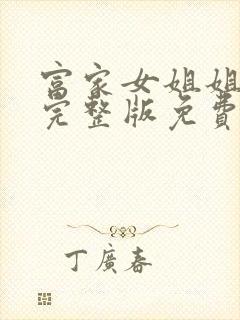 富家女姐姐
完整版免費
丁廣春